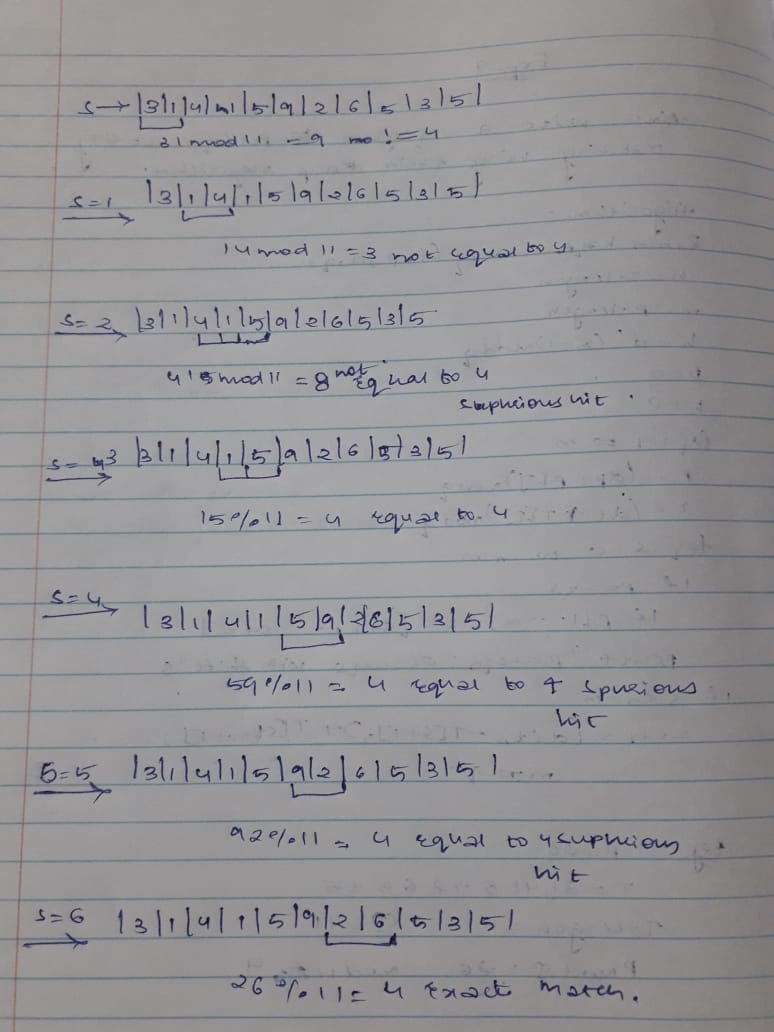 S→ |3|1|4|1|5|9|2|6|5|3|5|
31 mod 11 = 9 != 4
S=1 |3|1|4|1|5|9|2|6|5|3|5|
14 mod 11 = 3 not equal to 4
S=2 |3|1|4|1|5|9|2|6|5|3|5
415 mod 11 = 8 not Equal to 4
suphcious hit .
S=3 |3|1|4|1|5|9|2|6|5|3|5|
15%11 = 4 equal to 4
S=4 |3|1|4|1|5|9|2|6|5|3|5|
59%11 = 4 equal to 4 spurious
hit
S=5 |3|1|4|1|5|9|2|6|5|3|5|
92%11 = 4 equal to 4 suphcious
hit
S=6 |3|1|4|1|5|9|2|6|5|3|5|
26%11 = 4 Exact match.